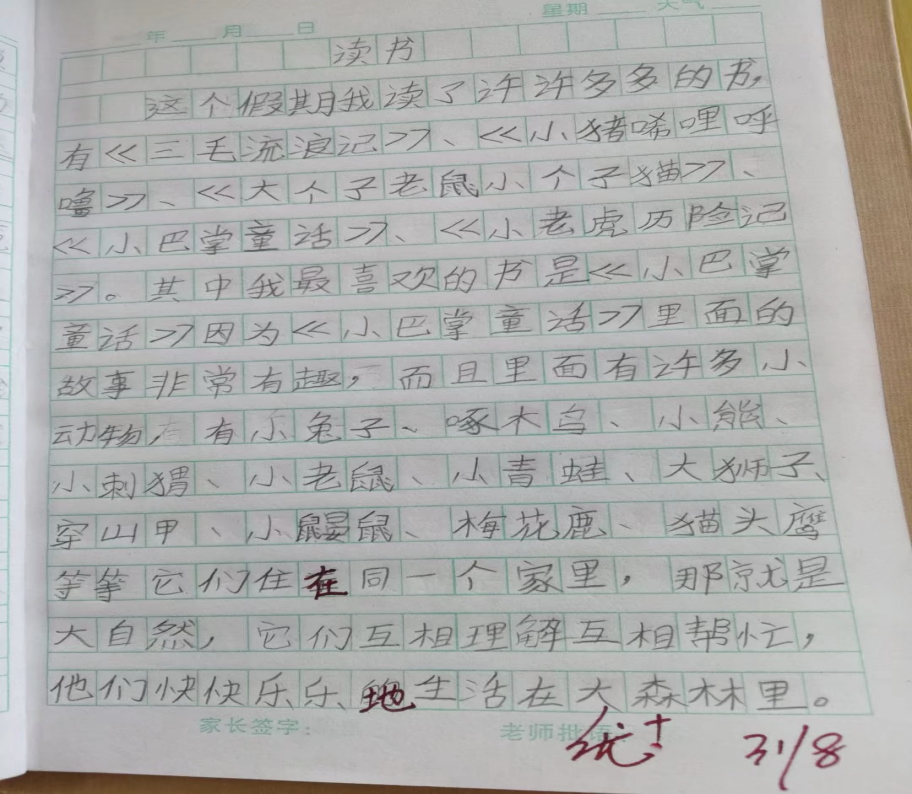 星期 天气
年 月 日
读书
这个假期我读了许许多多的书,
有《三毛流浪记》、《小猪唏哩呼
噜》、《大个子老鼠小个子猫》、
《小巴掌童话》、《小老虎历险记
》。其中我最喜欢的书是《小巴掌
童话》因为《小巴掌童话》里面的
故事非常有趣,而且里面有许多小
动物,有小兔子、啄木鸟、小熊、
小刺猬、小老鼠、小青蛙、大狮子、
穿山甲、小鼹鼠、梅花鹿、猫头鹰
等等它们住在同一个家里,那就是
大自然,它们互相理解互相帮忙,
他们快快乐乐地生活在大森林里。
家长签字: 老师批语:
优+ 31/8